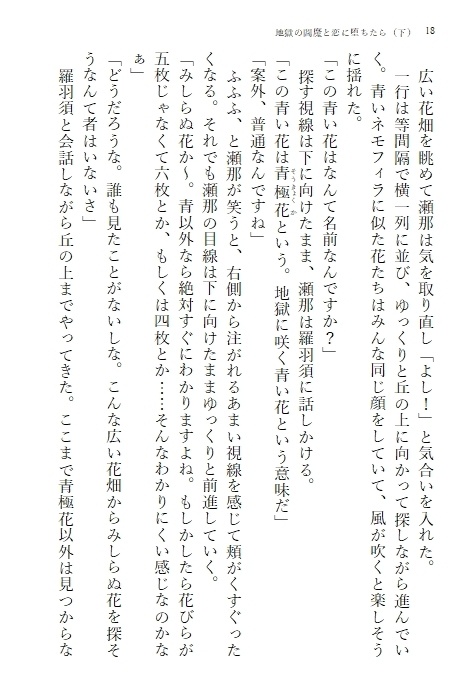 地獄の閻魔と恋に堕ちたら（下） 18
広い花畑を眺めて瀬那は気を取り直し「よし！」と気合いを入れた。
一行は等間隔で横一列に並び、ゆっくりと丘の上に向かって探しながら進んでい
く。青いネモフィラに似た花たちはみんな同じ顔をしていて、風が吹くと楽しそう
に揺れた。
「この青い花はなんて名前なんですか？」
探す視線は下に向けたまま、瀬那は羅羽須に話しかける。
「この青い花は青極花という。地獄に咲く青い花という意味だ」
「案外、普通なんですね」
ふふふ、と瀬那が笑うと、右側から注がれるあまい視線を感じて頬がくすぐった
くなる。それでも瀬那の目線は下に向けたままゆっくりと前進していく。
「みしらぬ花か〜。青以外なら絶対すぐにわかりますよね。もしかしたら花びらが
五枚じゃなくて六枚とか、もしくは四枚とか……そんなわかりにくい感じなのかな
ぁ」
「どうだろうな。誰も見たことがないしな。こんな広い花畑からみしらぬ花を探そ
うなんて者はいないさ」
羅羽須と会話しながら丘の上までやってきた。ここまで青極花以外は見つからな